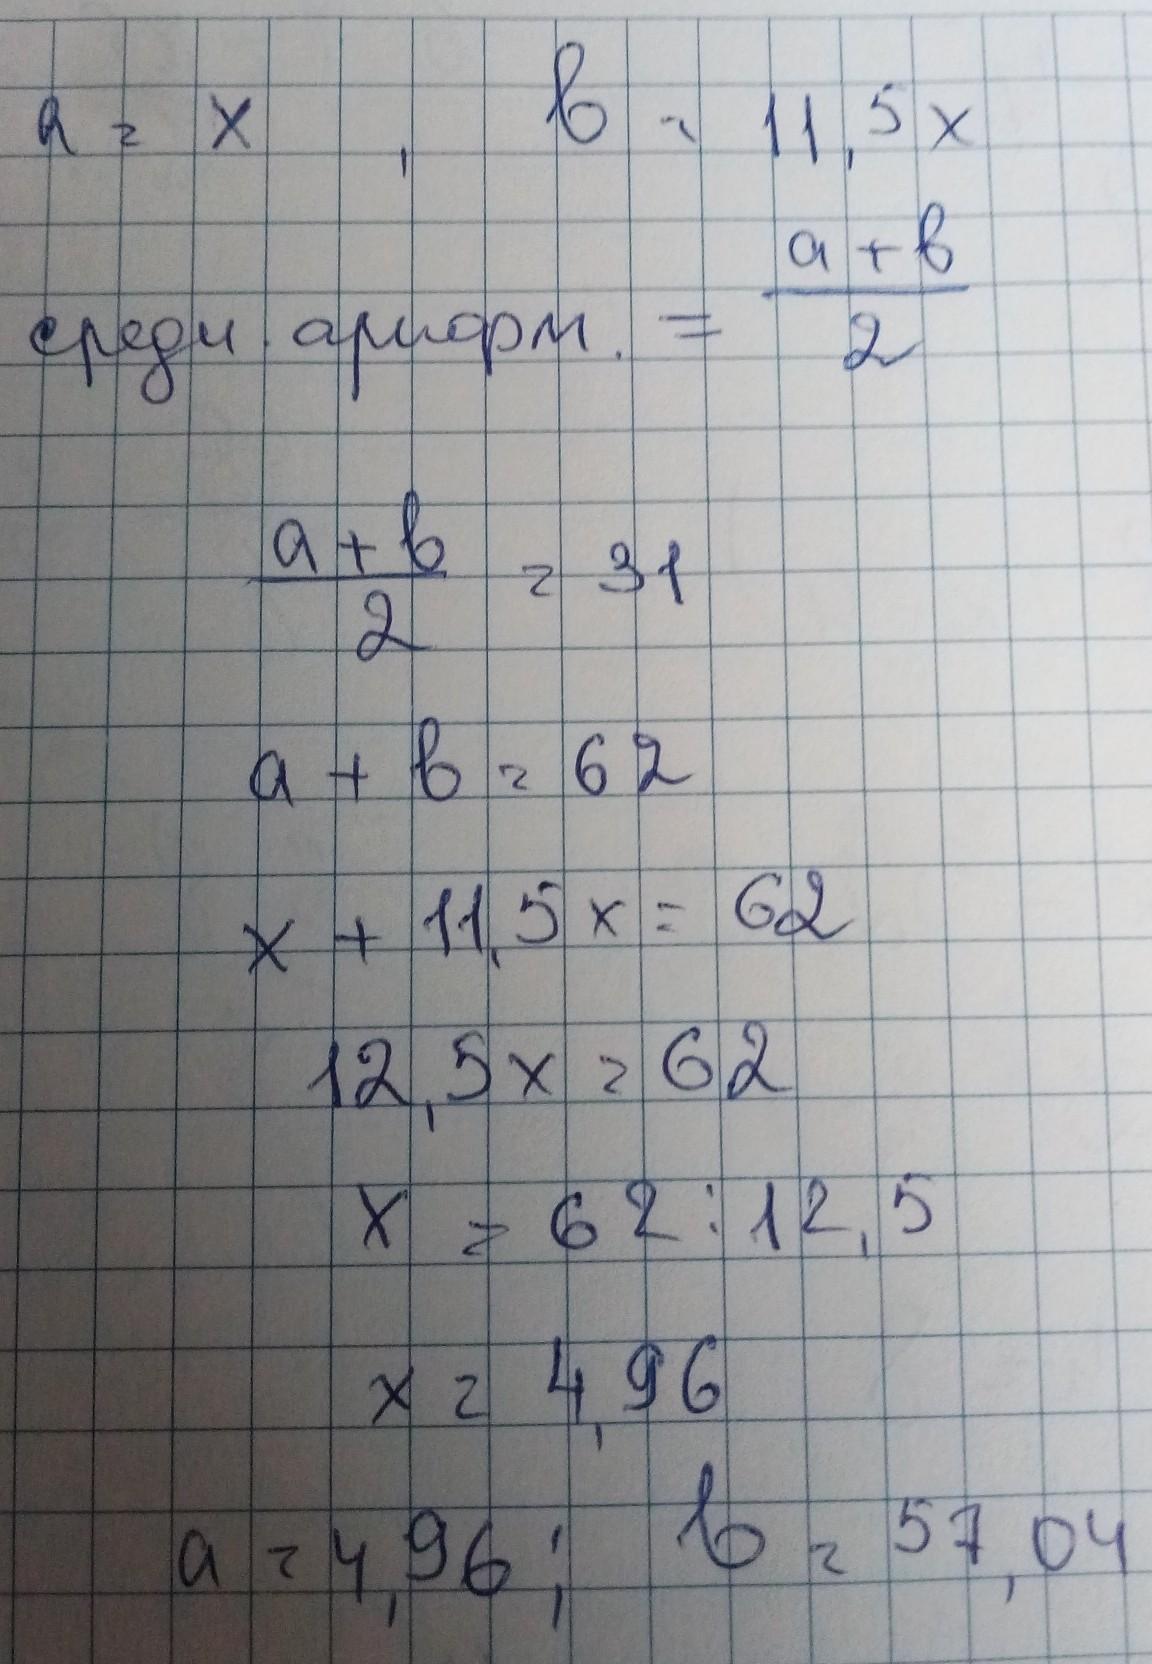 a = x , b = 11,5x
средн. арифм. = (a + b)/2
(a + b)/2 = 31
a + b = 62
x + 11,5x = 62
12,5x = 62
x = 62 : 12,5
x = 4,96
a = 4,96 ; b = 57,04